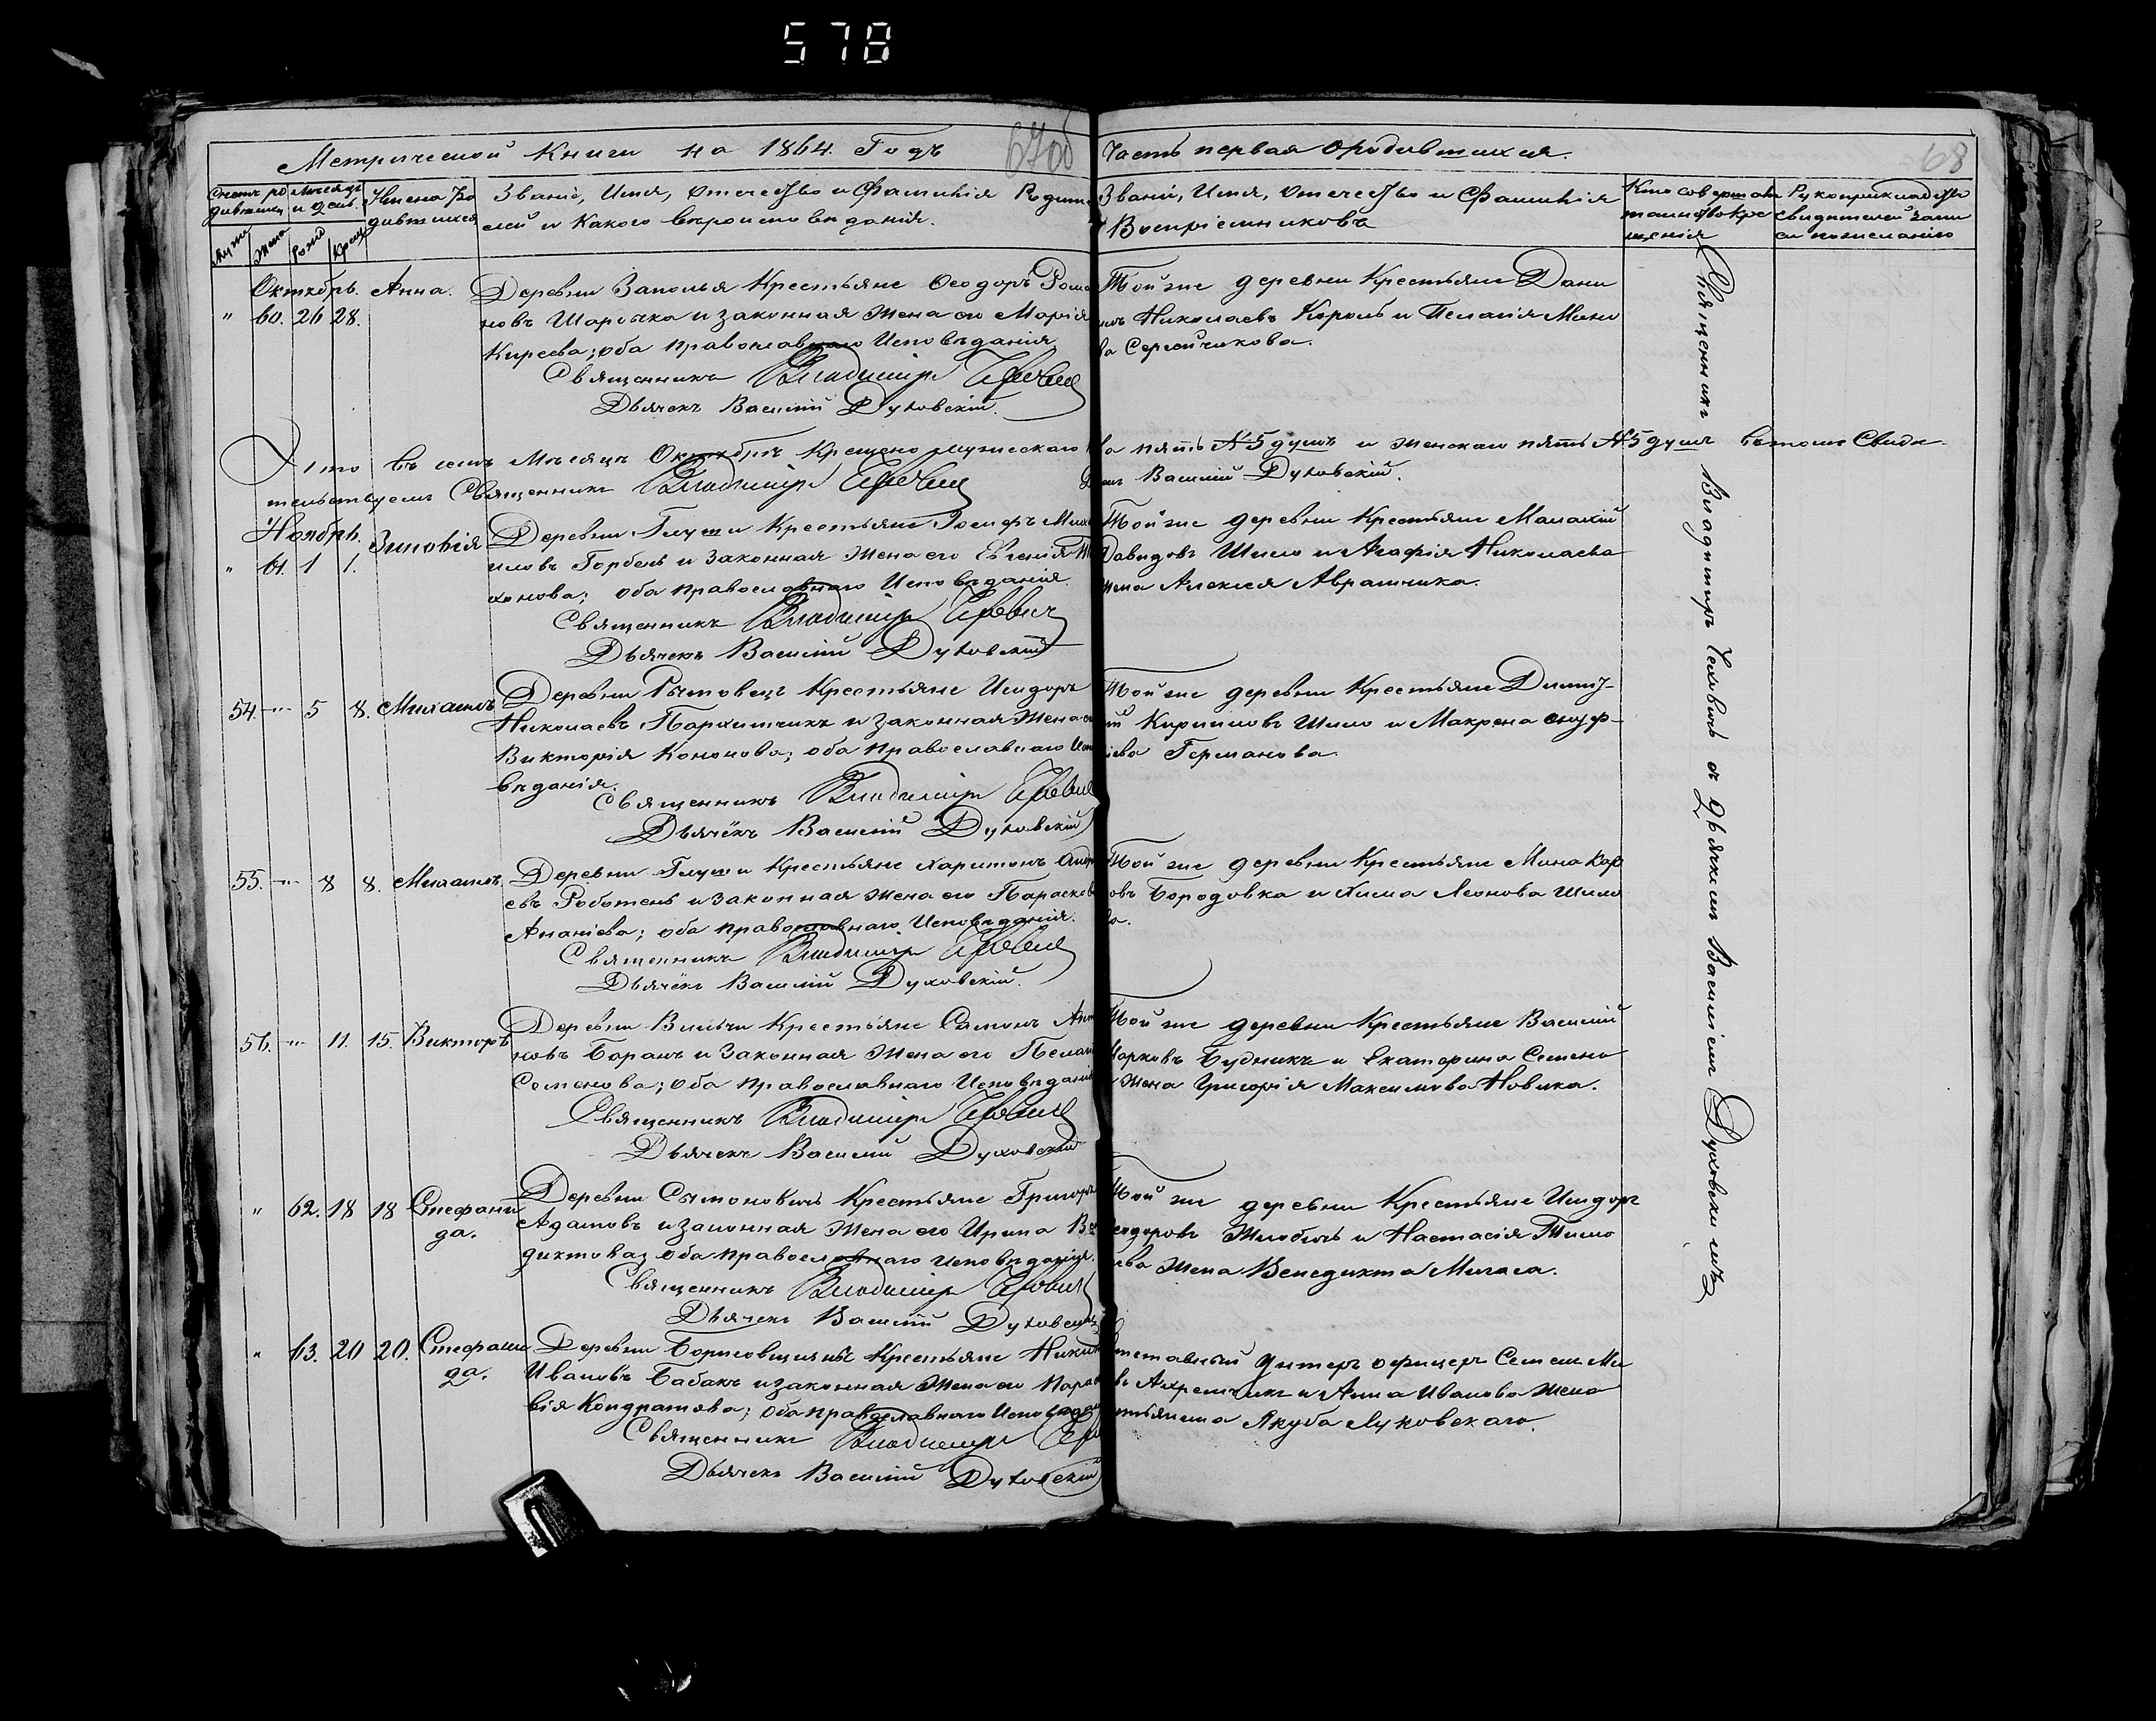 578
Метрической Книги на 1864. Годъ
67об
Часть первая о родившихся.
68
Счетъ ро
дившихся
Месяцъ
и день.
Имена Ро
дившихся
Званіе, Имя, Отечество и Фамилія Родите
лей и Какого вѣроисповѣданія.
Званіе, Имя, Отечество и Фамилія
Воспріемниковъ
Кто совершалъ
таинство Кре
щенія
Рукоприкладство
свидетелей записи
по желанію
Мужи Жена Рожд Крещ
Октябрь. Анна.
" 60. 26 28.
Деревни Заполья Крестьяне Ѳеодоръ Рома
новъ Шарочка и законная жена его Марія
Киреева; оба православнаго Исповѣданія
Священникъ Владимiръ
Дьячекъ Василій Духовскій.
Тойже деревни Крестьяне Дани
илъ Николаевъ Король и Пелагія
ва Сергейчикова.
Итого въ семъ Мѣсяцѣ Октябрѣ Крещено мужескаго
ла пять №5 душъ и женскаго пять №5 душъ въ томъ Свиде
тельствуемъ Священникъ Владимiръ
Василій Духовскій.
Ноябрь. Зиновія
" 61. 1 1.
Деревни Глуши Крестьяне Іосифъ Миха
иловъ Горбель и Законная жена его Евгенія
хонова; оба православнаго Исповѣданія.
Священникъ Владимiръ
Дьячекъ Василій Духовскій
Тойже деревни Крестьяне Малахій
Давидовъ Шило и Агафія Николаева
жена Алексея Аврамчика.
54. " 5 8. Михаилъ
Деревни Крестьяне Исидоръ
Николаевъ Пархимчикъ и законная жена его
Викторія Кононова; оба Православнаго Испо
вѣданія.
Священникъ Владимiръ
Дьячёкъ Василій Духовскій
Тойже деревни Крестьяне Дмитрій
Кирилловъ Шило и Макрена Ануф-
ріева Германова.
55. " 8 8. Михаилъ.
Деревни Глуши Крестьяне Харитонъ Андре
евъ Работень и Законная жена его Параскева
Ананіева; оба православнаго Исповѣданія.
Священникъ Владимiръ
Дьячёкъ Василій Духовскій.
Тойже деревни Крестьяне Мина Кар
повъ Бородовка и Хима Леонова Шило
ва.
56. " 11. 15. Викторъ
Деревни Вильчи Крестьяне Самонъ Анто
новъ Баранъ и Законная жена его Пелагія
Семенова; оба Православнаго Исповѣданія
Священникъ Владимiръ
Дьячекъ Василій Духовскій
Тойже деревни Крестьяне Василій
Марковъ Будникъ и Екатерина Семено
ва жена Григорія Максимова Новика.
" 62. 18 18 Стефани
да.
Деревни Сымоновичъ Крестьяне Григорій
Адамовъ и законная жена его Ирина Вене
диктова; оба православнаго исповѣданія.
Священникъ Владимiръ
Дьячекъ Василій Духовскій
Тойже деревни Крестьяне Исидоръ
Ѳеодоровъ Жлобичъ и Настасія Тимо
ѳеева жена Венедикта Мигаса.
" 63. 20 20. Стефани
да.
Деревни Борисовщины Крестьяне Никита
Ивановъ Бабакъ и законная жена его Параске
вія Кондратова; оба православнаго Исповѣдан
Священникъ Владимiръ
Дьячекъ Василій Духовскій
Отставный Унтеръ офицеръ Семенъ
Ахремчикъ и Анна Иванова жена
Крестьянина Якуба Луковскаго.
Священникъ Владимиръ Чеховичъ съ дьячкомъ Василіемъ Духовскимъ